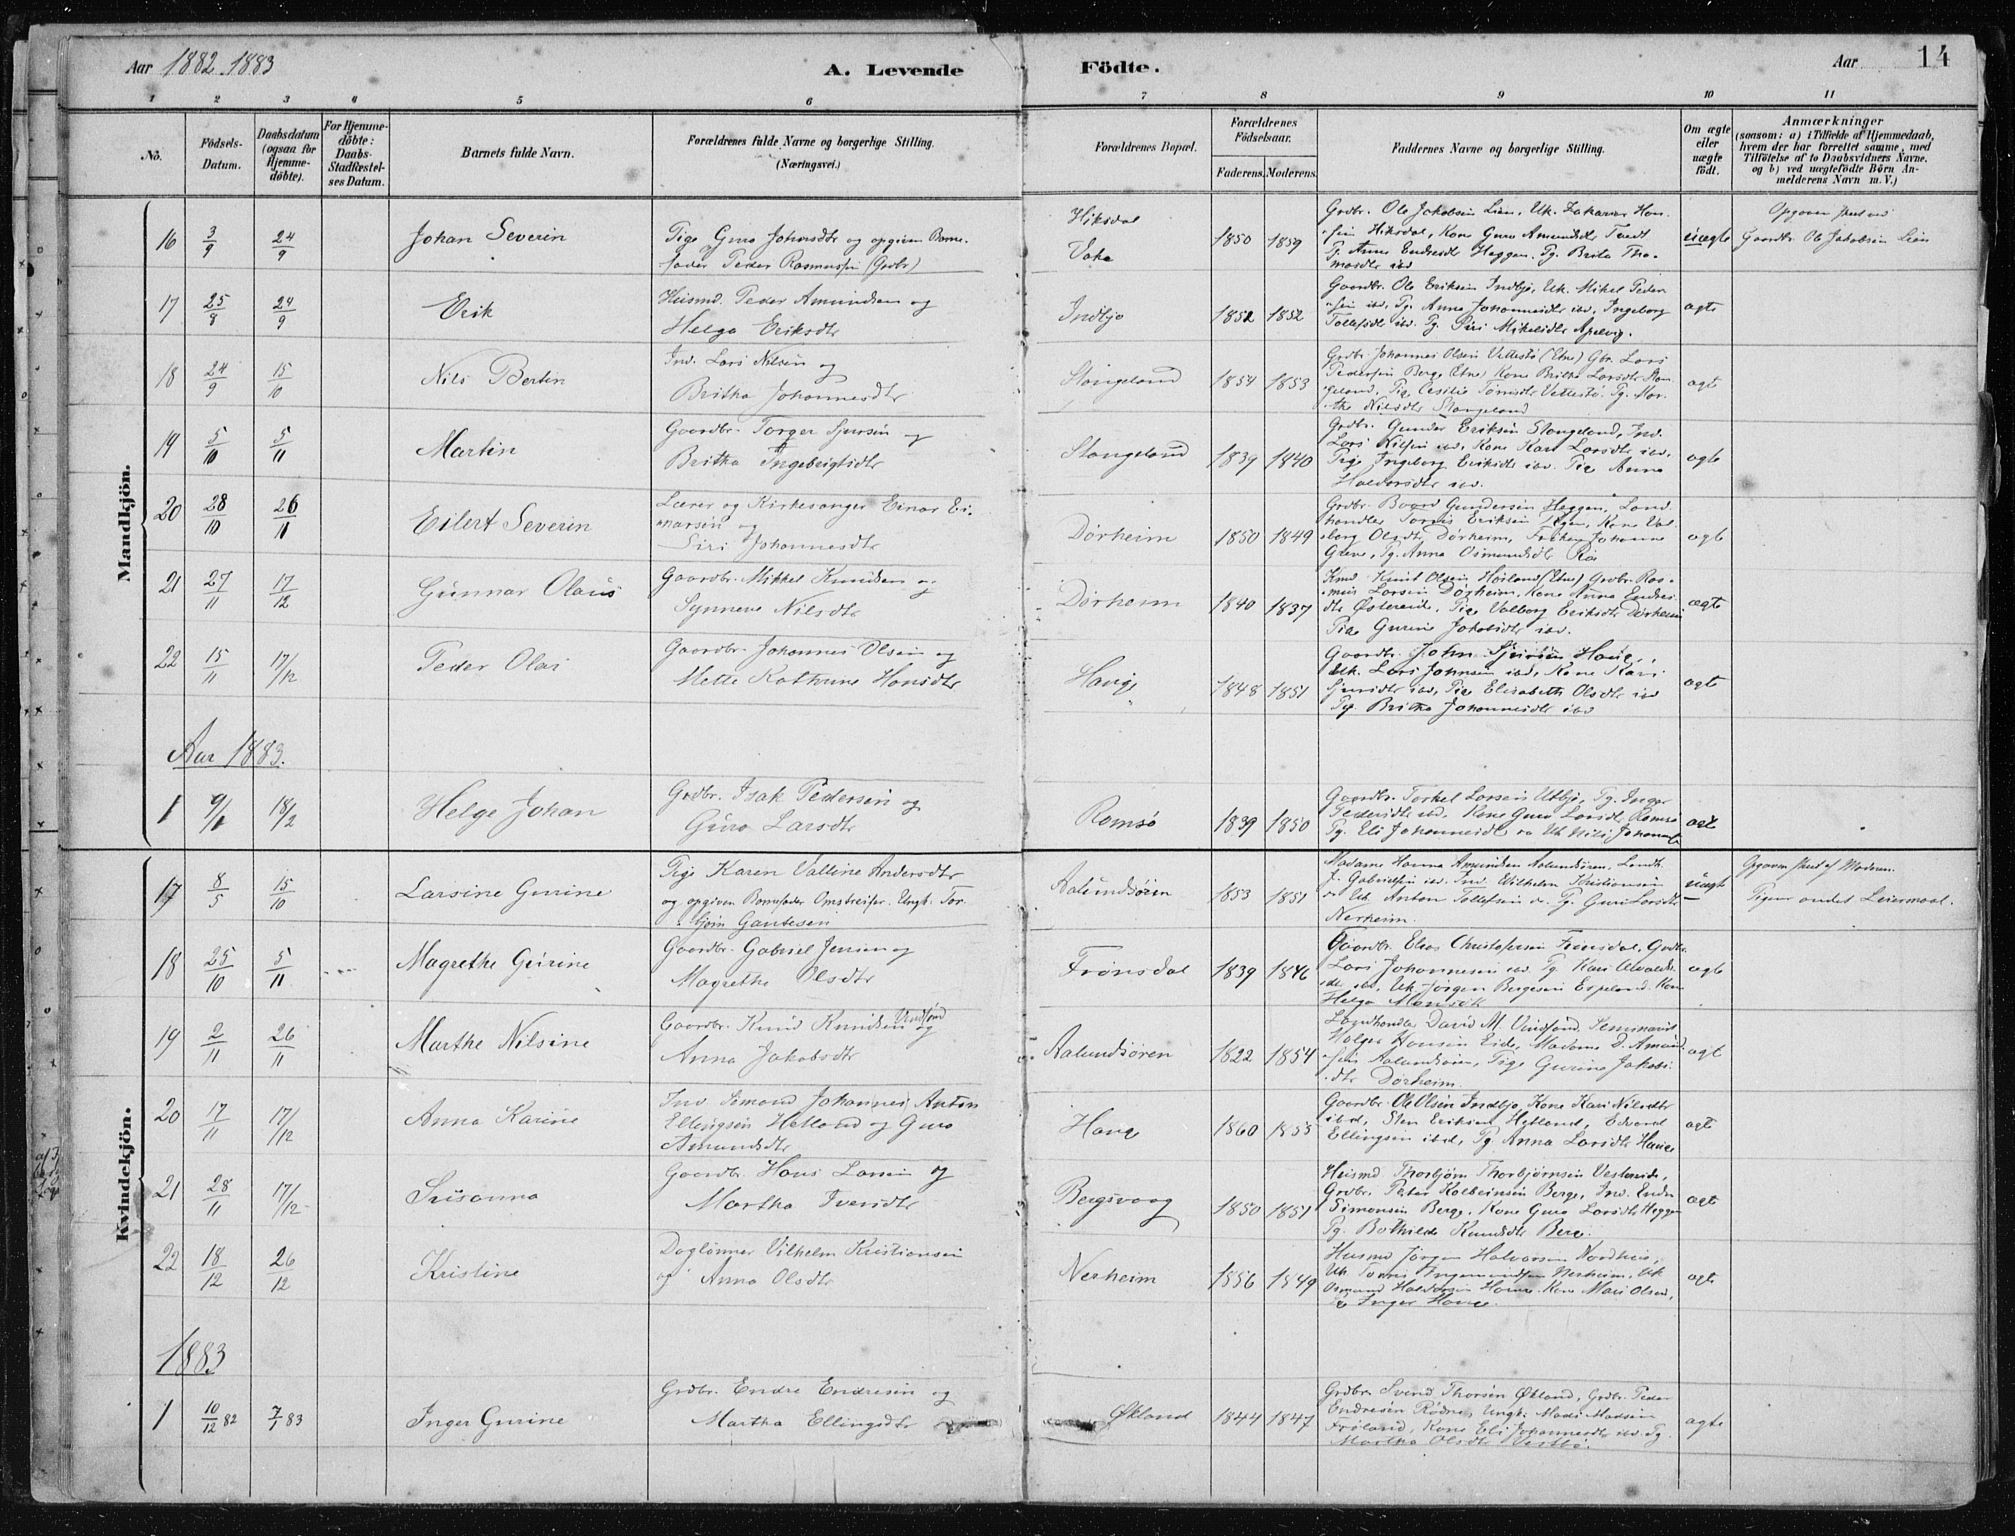 Aar 1882. 1883 A. Levende Födte. Aar 14
1 2 3 4 5 6 7 8 9 10 11
No. Födsels-Datum. Daabsdatum (ogsaa for Hjemme-döbte). For Hjemme-döbte: Daabs-Stadfæstel-ses Datum. Barnets fulde Navn. Forældrenes fulde Navne og borgerlige Stilling. (Næringsvei.) Forældrenes Bopæl. Forældrenes Födselsaar. Faderens. Moderens. Faddernes Navne og borgerlige Stilling. Om ægte eller uægte födt. Anmærkninger (saasom: a) i Tilfælde af Hjemmedaab, hvem der har forrettet samme, med Tilföielse af to Daabsvidners Navne, og b) ved uægtefödte Börn An-melderens Navn m. V.)
Mandkjön.
16 3/9 24/9 Johan Severin
Pige Guro Johnsdtr og opgiven Barne-
fader Peder Rasmussen (Grdbr)
Hiksdal
Vake
1850 1859
Grdbr. Ole Jakobsen Lien, Uk. Zakarias Han-
sen Hiksdal, Kone Guro Amundsdtr Tvedt
Pg. Anne Endresdtr Heggen, Pg. Brita Tho-
masdtr ibd
uægte
Opgaven skeet ved
Gaardbr. Ole Jakobsen Lien
17 25/8 24/9 Erik
Husmd. Peder Amundsen og
Helga Eriksdtr
Indbjo 1852 1852
Gaardbr. Ole Eriksen Indbjo, Uk. Mikel Peder
sen ibd, Pg. Anne Johannesdtr ibd, Ingeborg
Tollefsdtr ibd. Pg. Siri Mikelsdtr Apelvig.
ægte
18 24/9 15/10 Nils Bertin
Ind. Lars Nilsen og
Britha Johannesdtr
Stangeland 1854 1853
Grdbr. Johannes Olsen Vettestø (Etne) Gbr. Lars
Pedersen Berge (Etne) Kone Britha Larsdtr Stan
geland, Pige Cesilie Tønnesdtr Vettestø. Pg. Mar-
the Nilsdtr Stangeland
ægte
19 5/10 5/11 Martin
Gaardbr. Torger Sjursen og
Britha Ingebrigtsdtr
Stangeland 1839 1840
Grdbr. Gunder Eriksen Stangeland, Ind.
Lars Nilsen ibd, Kone Kari Larsdtr ibd,
Pige Ingeborg Eriksdtr ibd. Pige Anna
Haldorsdtr ibd.
ægte
20 28/10 26/11 Eilert Severin
Lærer og Kirkesanger Einar Ei-
narsen og
Siri Johannesdtr
Dørheim 1850 1849
Grdbr. Baard Gundersen Heggen, Land
handler Tørris Eriksen, Kone Val
borg Olsdtr Dørheim, Frøken Johanne
Greve, Pg. Anna Osmundsdtr
ægte
21 27/11 17/12 Gunnar Olaus
Gaardbr. Mikkel Knudsen og
Synneve Nilsdtr
Dørheim 1840 1837
Knud Olsen Høiland (Etne) Grdbr. Ras-
mus Larsen Dørheim, Kone Anna Endres
dtr Østereide, Pige Valborg Eriksdtr Dørheim
Pige Gurine Jakobsdtr ibd.
ægte
22 15/11 17/12 Peder Olai
Gaardbr. Johannes Olsen og
Mette Kathrine Hansdtr
Hauge 1848 1851
Gaardbr. John Sjursen Hauge,
Uk. Lars Johnsen ibd, Kone Kari
Sjursdtr ibd, Pige Elisabeth Olsdtr ibd
Pg. Britha Johannesdtr ibd
ægte
Aar 1883.
1 9/1 18/2 Helge Johan
Grdbr. Isak Pedersen og
Guro Larsdtr
Romsø 1839 1850
Gaardbr. Torkel Larsen Utbjo, Pg. Inger
Pedersdtr ibd, Kone Guro Larsdtr Romsø
Pg. Eli Johannesdtr Uk Nils Johannes
ægte
Kvindekjön.
17 8/5 15/10 Larsine Gurine
Pige Karen Valline Andersdtr
og opgiven Barnefader Omstreifer, Ungk. Tor-
bjørn Gautesen
Aalundsøren 1853 1851
Madame Hanna Amundsen Aalundsøren, Landh.
J. Gabrielsen ibd. Ind. Vilhelm Kristiansen
Uk. Anton Tollefsen Pg. Guri Larsdtr
Nerheim.
uægte
Opgaven skeet af Moderen.
Pigens andet Leiermaal.
18 25/10 5/11 Magrethe Gurine
Gaardbr. Gabriel Jensen og
Magrethe Olsdtr
Frønsdal 1839 1846
Gaardbr. Elias Christofersen Frønsdal, Grdbr.
Lars Johannesen ibd Pg. Kari
dtr ibd, Uk Jørgen Bergesen Espeland. Kone
Helga
ægte
19 2/11 26/11 Marthe Nilsine
Gaardbr. Knud Knudsen Vindfond og
Anna Jakobsdtr
Aalundsøren 1822 1854
Landhandler David M. Vindfond, Seminarist
Holger Hansen Eide, Madame D. Amund
sen Aalundsøren, Pige Gurine Jakobs
dtr Dørheim.
ægte
20 17/11 17/12 Anna Karine
Ind. Sømand Johannes Anton
Ellingsen Hetland og Guro
Amundsdtr
Hauge 1860 1855
Gaardbr. Ole Olsen Indbjo, Kone Kari Nilsdtr
ibd, Sten Eriksen Hetland, Edvard
Ellingsen ibd, Pg. Anna Larsdtr Hauge
ægte
21 28/11 17/12 Susanna
Gaardbr Hans Larsen og
Martha Iversdtr
Bergsvaag 1850 1851
Husmd Thorbjørn Thorbjørnsen Vestereide,
Grdbr. Peter Kolbeinsen Berge, Ind. Endre
Simonsen Berge, Kone Guro Larsdtr Heggen
Pg. Bothilde Knudsdtr Berge.
ægte
22 18/12 26/12 Kristine
Daglønner Vilhelm Kristiansen
og Anna Olsdtr
Nerheim 1856 1849
Husmd Jørgen Halvorsen Nordhus,
Uk Tørris Ingemundsen Nerheim, Uk
Osmund Haldorsen Hauge. Kone Mari Olsen,
Inger Hauge.
ægte
1883
1 10/12 82 7/1 83 Inger Gurine
Grdbr. Endre Endresen og
Martha Ellingsdtr
Økland 1844 1847
Grdbr. Svend Thorsen Økland, Grdbr. Peder
Endresen Rødne, Ungk. Mads Madsen
Frøland, Kone Eli Johannesdtr ibd. Pg
Martha Olsdtr Vestbø.
ægte